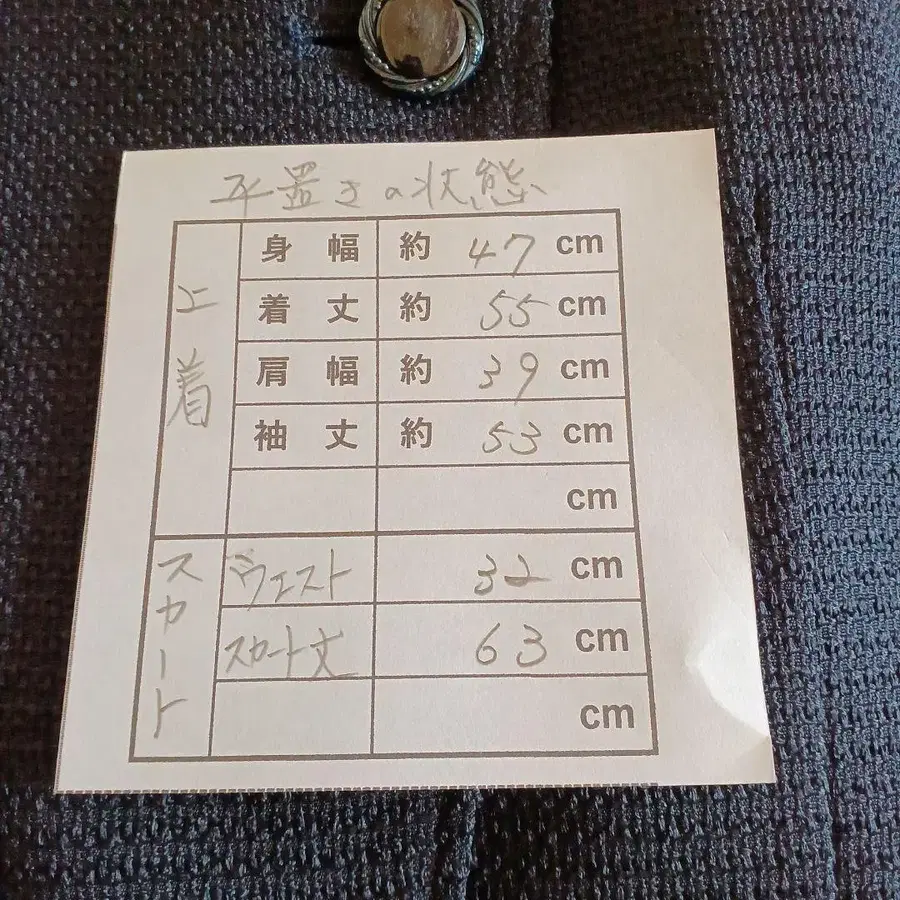 平置きの状態
上着
身幅 約 47 cm
着丈 約 55 cm
肩幅 約 39 cm
袖丈 約 53 cm
cm
スカート
ウエスト 32 cm
スカート丈 63 cm
cm